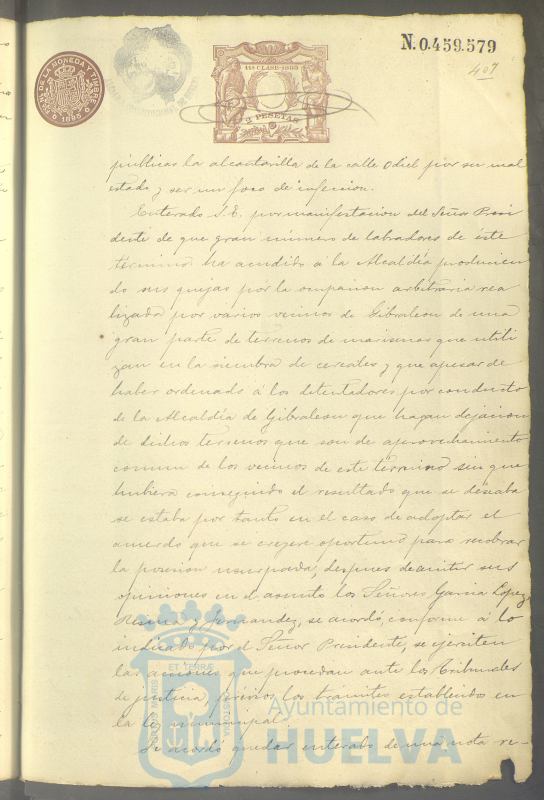 N.0.459.579
407
NAL DE LA MONEDA Y TIMBRE
1895
11ª CLASE-1895
2 PESETAS
publicas la alcantarilla de la calle Odiel por su mal
estado y ser un foco de infeccion.
Enterado S.E. por manifestacion del Señor Presi
dente de que gran número de labradores de éste
término ha acudido á la Alcaldía producien
do sus quejas por la ocupacion arbitraria rea
lizada por varios vecinos de Gibraleon de una
gran parte de terrenos de marismas que utili
zan en la siembra de cereales y que apesar de
haber ordenado á los detentadores por conducto
de la Alcaldía de Gibraleon que hagan dejacion
de dichos terrenos que son de aprovechamiento
comun de los vecinos de este término sin que
hubiera conseguido el resultado que se deseaba
se estaba por tanto en el caso de adoptar el
acuerdo que se creyere oportuno para recobrar
la posesion usurpada, despues de emitir sus
opiniones en el asunto los Señores Garcia Lopez,
y Fernandez, se acordó, conforme á lo
indicado por el Señor Presidente, se ejerciten
las acciones que procedan ante los Tribunales
de justicia, prévios los tramites establecidos en
la ley municipal.
Se acordó quedar enterado de una nota re-
ET TERRÆ
PORTUS MARIS
CUSTODIA
Ayuntamiento de
HUELVA